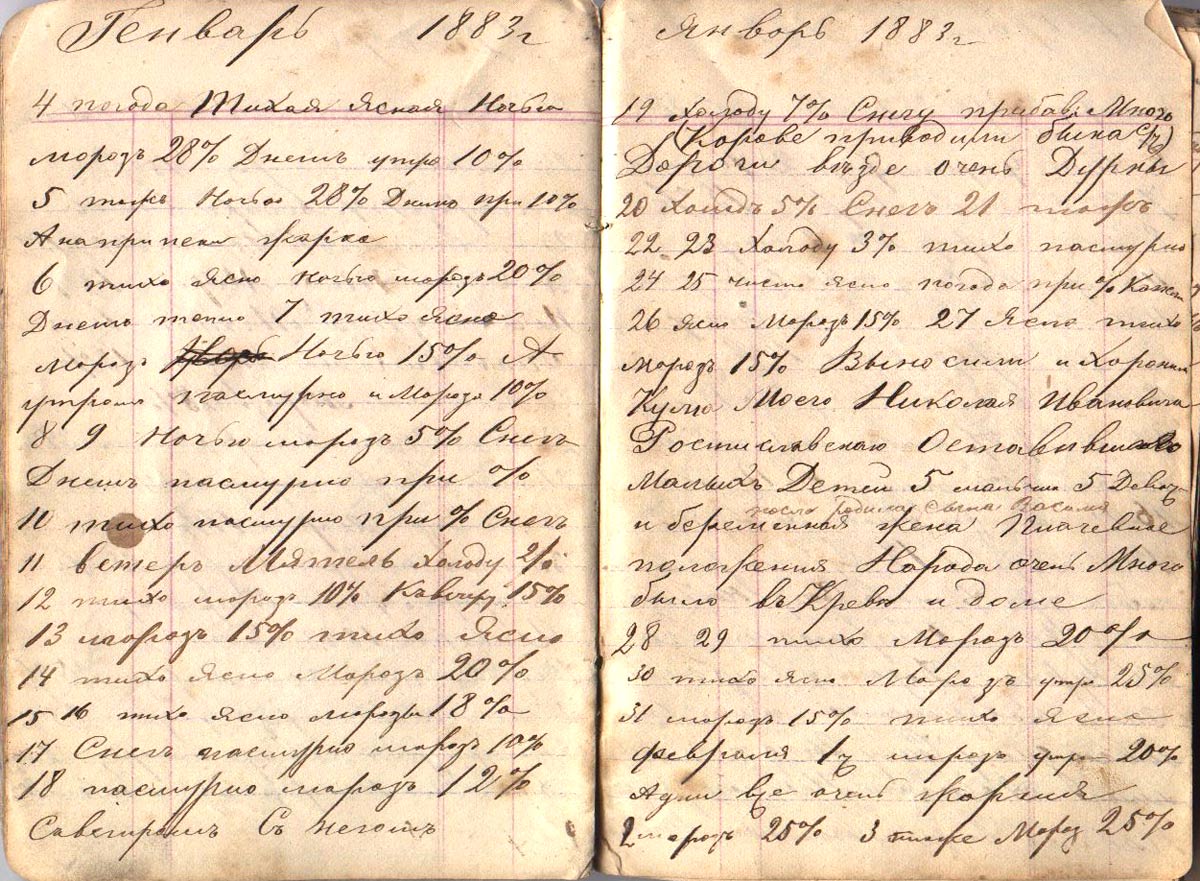 Генварь 1883 г
4 погода Тихая ясная Ночью
морозъ 28% Днемъ утро 10%
5 тожъ Ночью 28% Днемъ при 10%
А на припеки жарко
6 тихо ясно ночью морозъ 20%
Днемъ тепло 7 тихо ясно
морозъ Ночью 15% А
утромъ пасмурно и Мороза 10%
8 9 Ночью морозъ 5% Снегъ
Днемъ пасмурно при %
10 тихо пасмурно при % Снегъ
11 ветеръ Мятель Холоду 2%
12 тихо морозъ 10% Къ вечеру 15%
13 морозъ 15% тихо Ясно
14 тихо Ясно Морозъ 20%
15 16 тихо Ясно морозы 18%
17 Снегъ пасмурно морозъ 10%
18 пасмурно морозъ 12%
Саветромъ Снегомъ
Январь 1883 г
19 Холоду 7% Снегу прибав. Много
(Корове приводили быка с/ч)
Дороги въезде очень Дурны
20 Холодъ 5% Снегъ 21 тожъ
22 23 Холоду 3% тихо пасмурно
24 25 чисто ясно погода при %
26 ясно Морозъ 15% 27 Ясно тихо
морозъ 15% Выносили и Хоронили
Кума Моего Николая Ивановича
Ростиславскаю Оставившаго
Малыхъ Детей 5 5 Девоч
после родила сына Василия
и беременная жена Плачевное
положения Народа очень Много
было въ Церкви и доме
28 29 тихо Морозъ 20%
30 тихо ясно Морозъ утро 25%
31 морозъ 15% тихо ясно
февраля 1 ч морозъ утро 20%
А дни все очень жаркия
2 морозъ 25% 3 тиже Мороз 25%